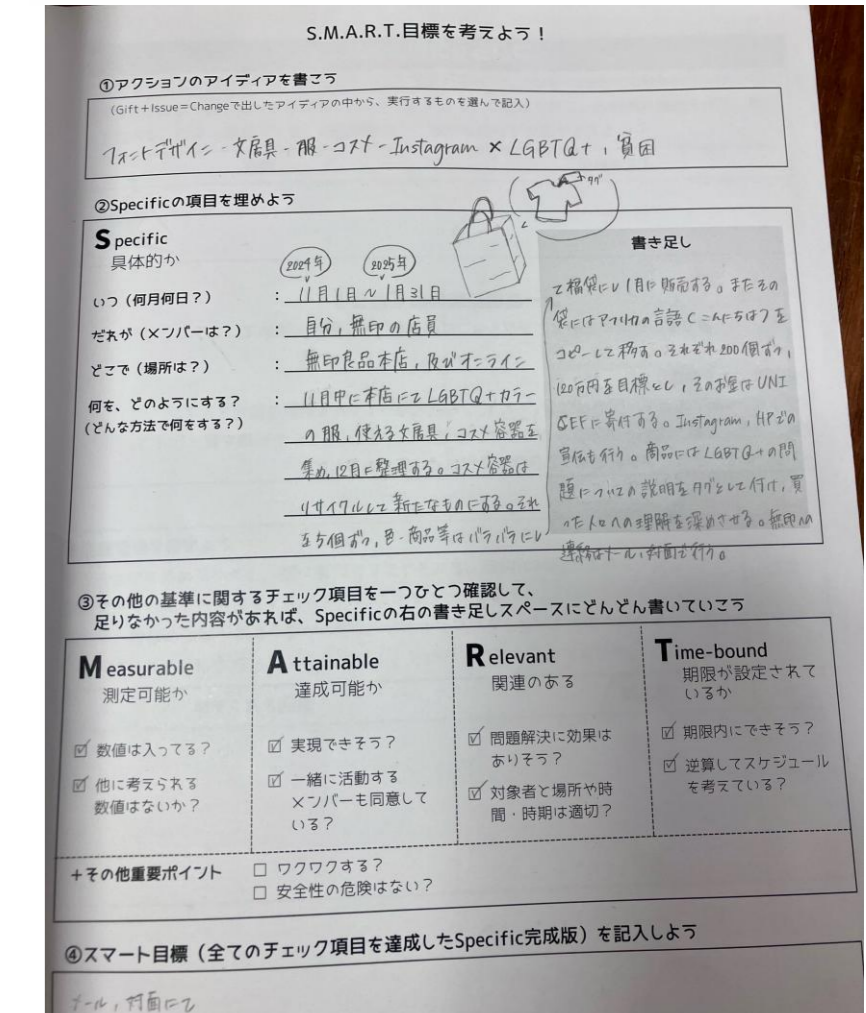 S.M.A.R.T.目標を考えよう！
①アクションのアイディアを書こう
(Gift+Issue=Changeで出したアイディアの中から、実行するものを選んで記入)
フォントデザイン-文房具-服-コスメ-Instagram × LGBTQ+，貧困
②Specificの項目を埋めよう
タグ
Specific
具体的か
2024年 2025年
いつ（何月何日？） : 11月1日～1月31日
だれが（メンバーは？） : 自分，無印の店員
どこで（場所は？） : 無印良品本店，及びオンライン
何を、どのようにする？ : 11月中に本店にてLGBTQ+カラー
（どんな方法で何をする？） の服，使える文房具，コスメ容器を
集め，12月に整理する。コスメ容器は
リサイクルして新たなものにする。それ
を5個ずつ，色・商品等はバラバラにし
書き足し
て福袋にし1月に販売する。またその
袋にはアフリカの言語（こんにちは）を
コピーして移す。それぞれ200個ずつ，
120万円を目標とし，そのお金はUNI
CEFに寄付する。Instagram，HPでの
宣伝も行う。商品にはLGBTQ+の問
題についての説明をタグとして付け，買
った人への理解を深めさせる。無印への
連絡はメール，対面で行う。
③その他の基準に関するチェック項目を一つひとつ確認して、
足りなかった内容があれば、Specificの右の書き足しスペースにどんどん書いていこう
Measurable
測定可能か
☑ 数値は入ってる？
☑ 他に考えられる
数値はないか？
Attainable
達成可能か
☑ 実現できそう？
☑ 一緒に活動する
メンバーも同意して
いる？
Relevant
関連のある
☑ 問題解決に効果は
ありそう？
☑ 対象者と場所や時
間・時期は適切？
Time-bound
期限が設定されて
いるか
☑ 期限内にできそう？
☑ 逆算してスケジュール
を考えている？
+その他重要ポイント
□ ワクワクする？
□ 安全性の危険はない？
④スマート目標（全てのチェック項目を達成したSpecific完成版）を記入しよう
メール，対面にて